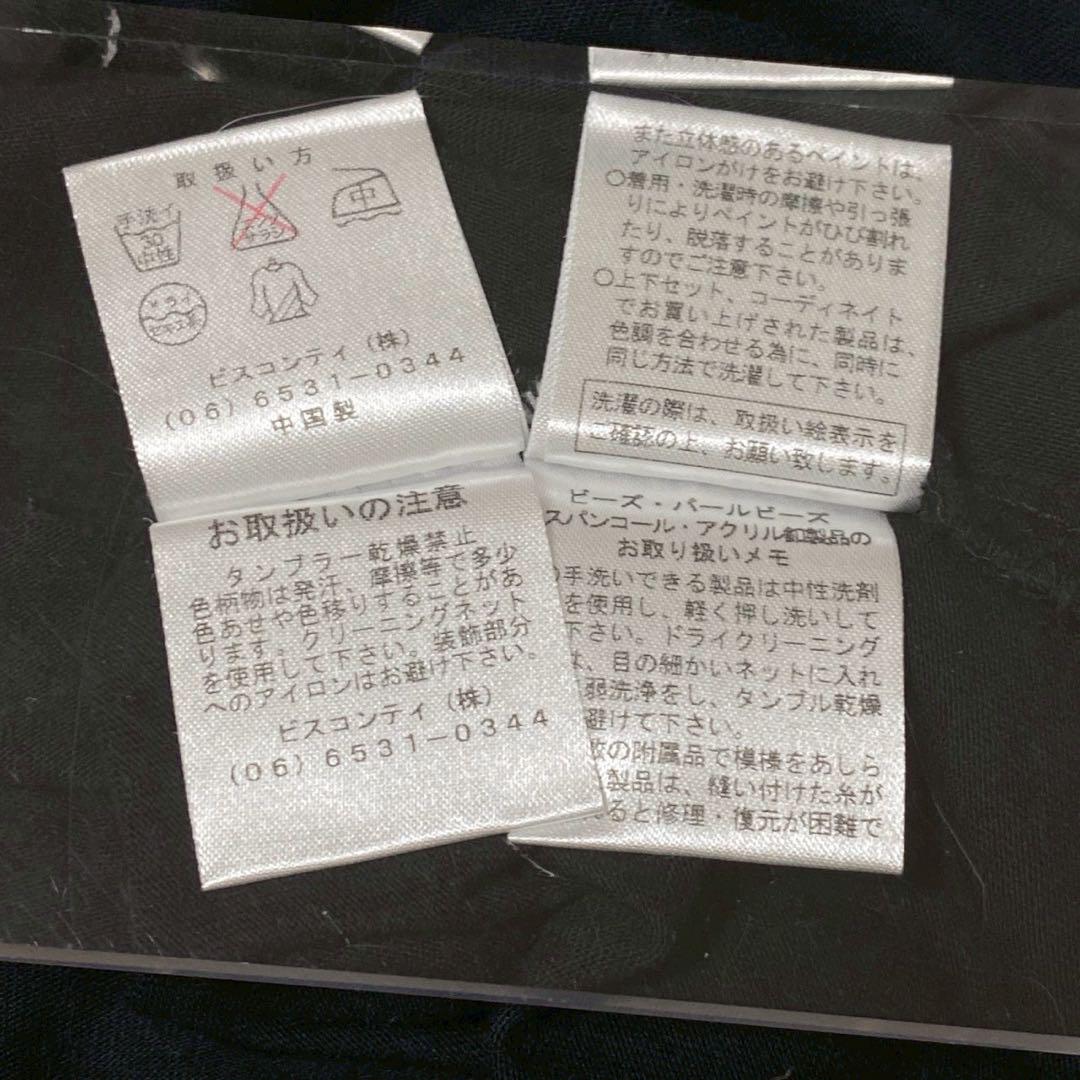 取扱い方
手洗イ
30
中性
エンソ
サラシ
中
ドライ
セキユ系
ビスコンティ（株）
（０６）６５３１－０３４４
中国製
また立体感のあるペイントは、
アイロンがけをお避け下さい。
○着用・洗濯時の摩擦や引っ張
りによりペイントがひび割れ
たり、脱落することがありま
すのでご注意下さい。
○上下セット、コーディネイト
でお買い上げされた製品は、
色調を合わせる為に、同時に
同じ方法で洗濯して下さい。
洗濯の際は、取扱い絵表示を
ご確認の上、お願い致します。
お取扱いの注意
タンブラー乾燥禁止
色柄物は発汗、摩擦等で多少
色あせや色移りすることがあ
ります。クリーニングネット
を使用して下さい。装飾部分
へのアイロンはお避け下さい。
ビスコンティ（株）
（０６）６５３１－０３４４
ビーズ・パールビーズ
スパンコール・アクリル釦製品の
お取り扱いメモ
手洗いできる製品は中性洗剤
を使用し、軽く押し洗いして
下さい。ドライクリーニング
は、目の細かいネットに入れ
弱洗浄をし、タンブル乾燥
避けて下さい。
数の附属品で模様をあしら
製品は、縫い付けた糸が
ると修理・復元が困難で